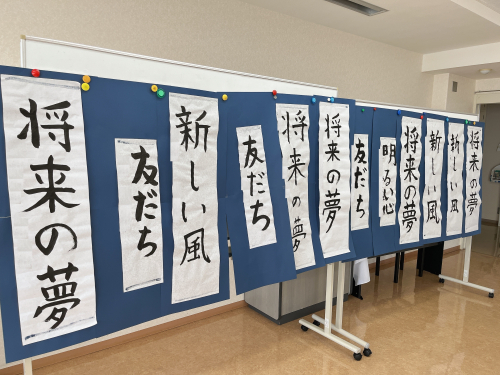 将来の夢
友だち
新しい風
友だち
将来の夢
将来の夢
友だち
明るい心
将来の夢
新しい風
新しい風
将来の夢